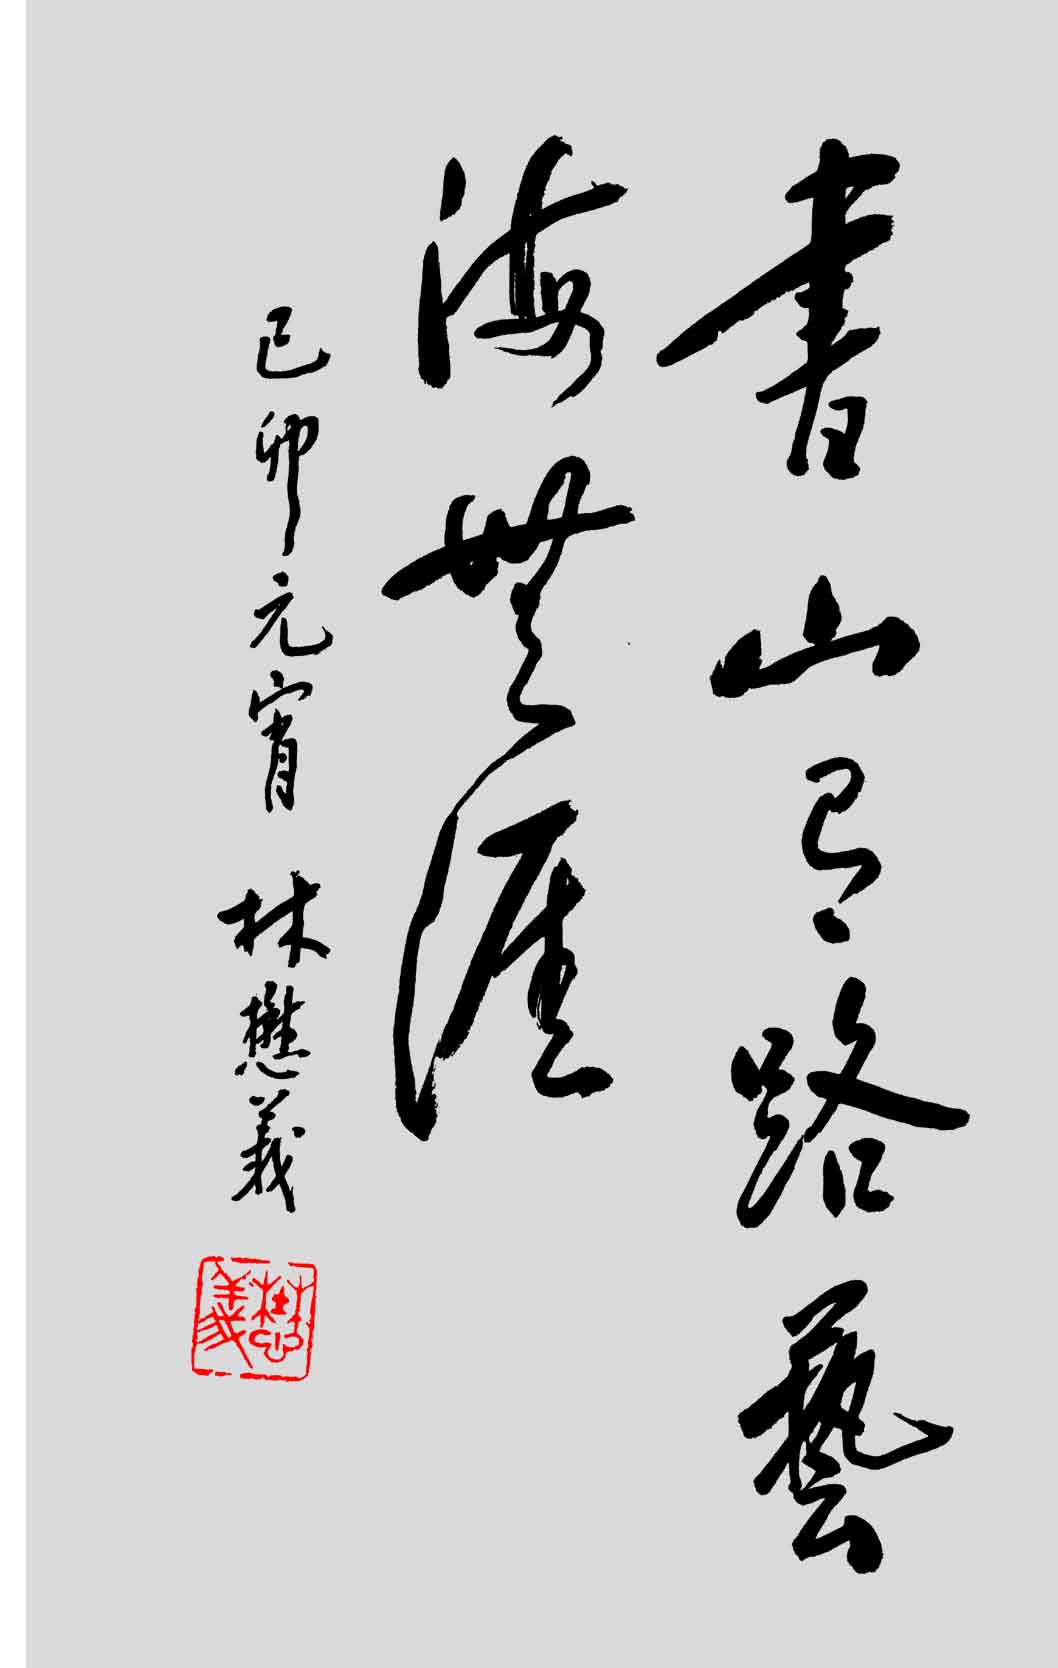 書山有路藝
海無涯
己卯元宵 林懋義
懋義